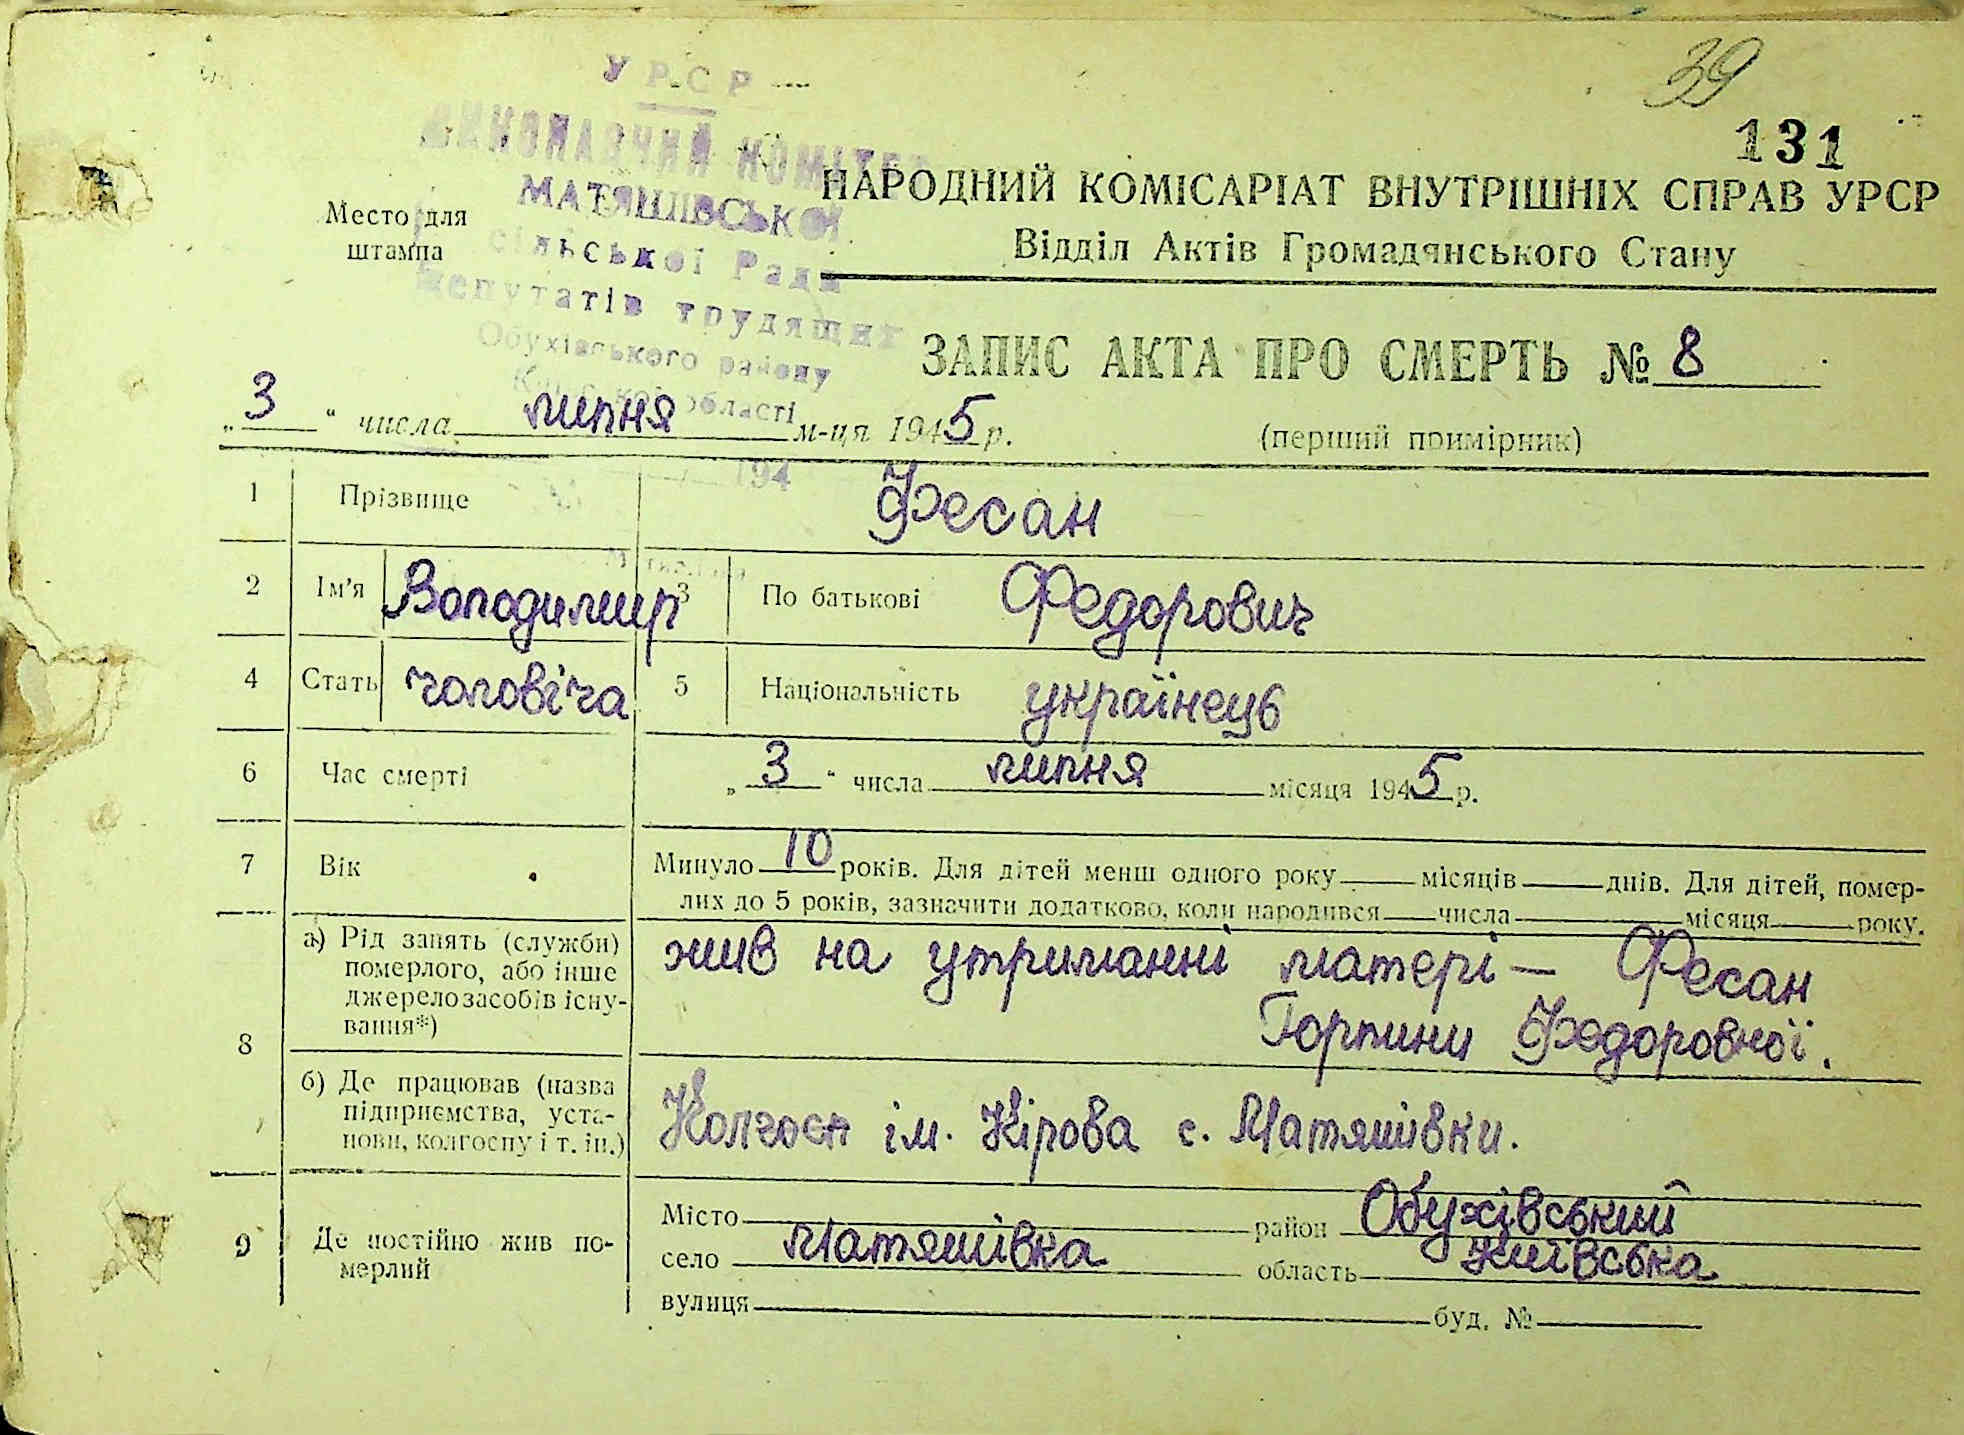 39
131
УРСР
ВИКОНАВЧИЙ КОМІТЕТ
МАТЯШІВСЬКОЇ
сільської Ради
депутатів трудящих
Обухівського району
Київської області
194
Место для
штампа
НАРОДНИЙ КОМІСАРІАТ ВНУТРІШНІХ СПРАВ УРСР
Відділ Актів Громадянського Стану
ЗАПИС АКТА ПРО СМЕРТЬ № 8
„3“ числа липня м-ця 1945 р. (перший примірник)
1 Прізвище Фесан
2 Ім'я Володимир 3 По батькові Федорович
4 Стать чоловіча 5 Національність українець
6 Час смерті „3“ числа липня місяця 1945 р.
7 Вік Минуло 10 років. Для дітей менш одного року місяців днів. Для дітей, помер-
лих до 5 років, зазначити додатково, коли народився числа місяця року.
8 а) Рід занять (служби)
померлого, або інше
джерело засобів існу-
вання*)
жив на утриманні матері — Фесан
Горпини Федоровної.
б) Де працював (назва
підприємства, уста-
нови, колгоспу і т. ін.)
Колгосп ім. Кірова с. Матяшівки.
9 Де постійно жив по-
мерлий
Місто район Обухівський
село Матяшівка область Київська
вулиця буд. №